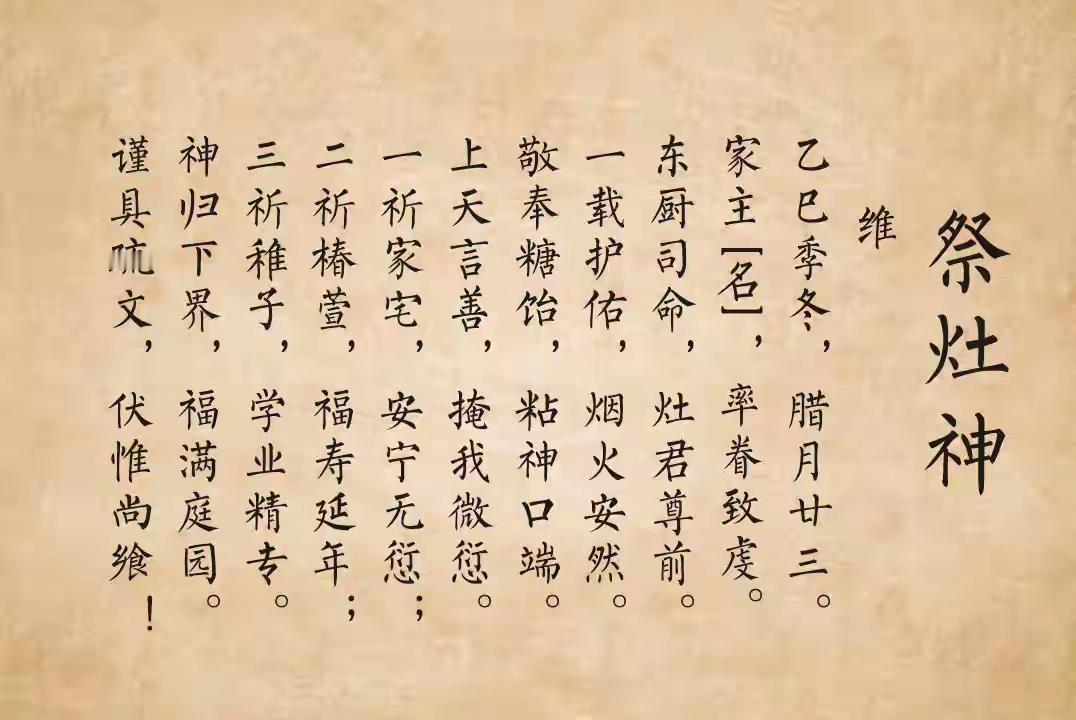 祭灶神
维
乙巳季冬，腊月廿三。
家主[名]，率眷致虔。
东厨司命，灶君尊前。
一载护佑，烟火安然。
敬奉糖饴，粘神口端。
上天言善，掩我微愆。
一祈家宅，安宁无愆；
二祈椿萱，福寿延年；
三祈稚子，学业精专。
神归下界，福满庭园。
谨具文，伏惟尚飨！